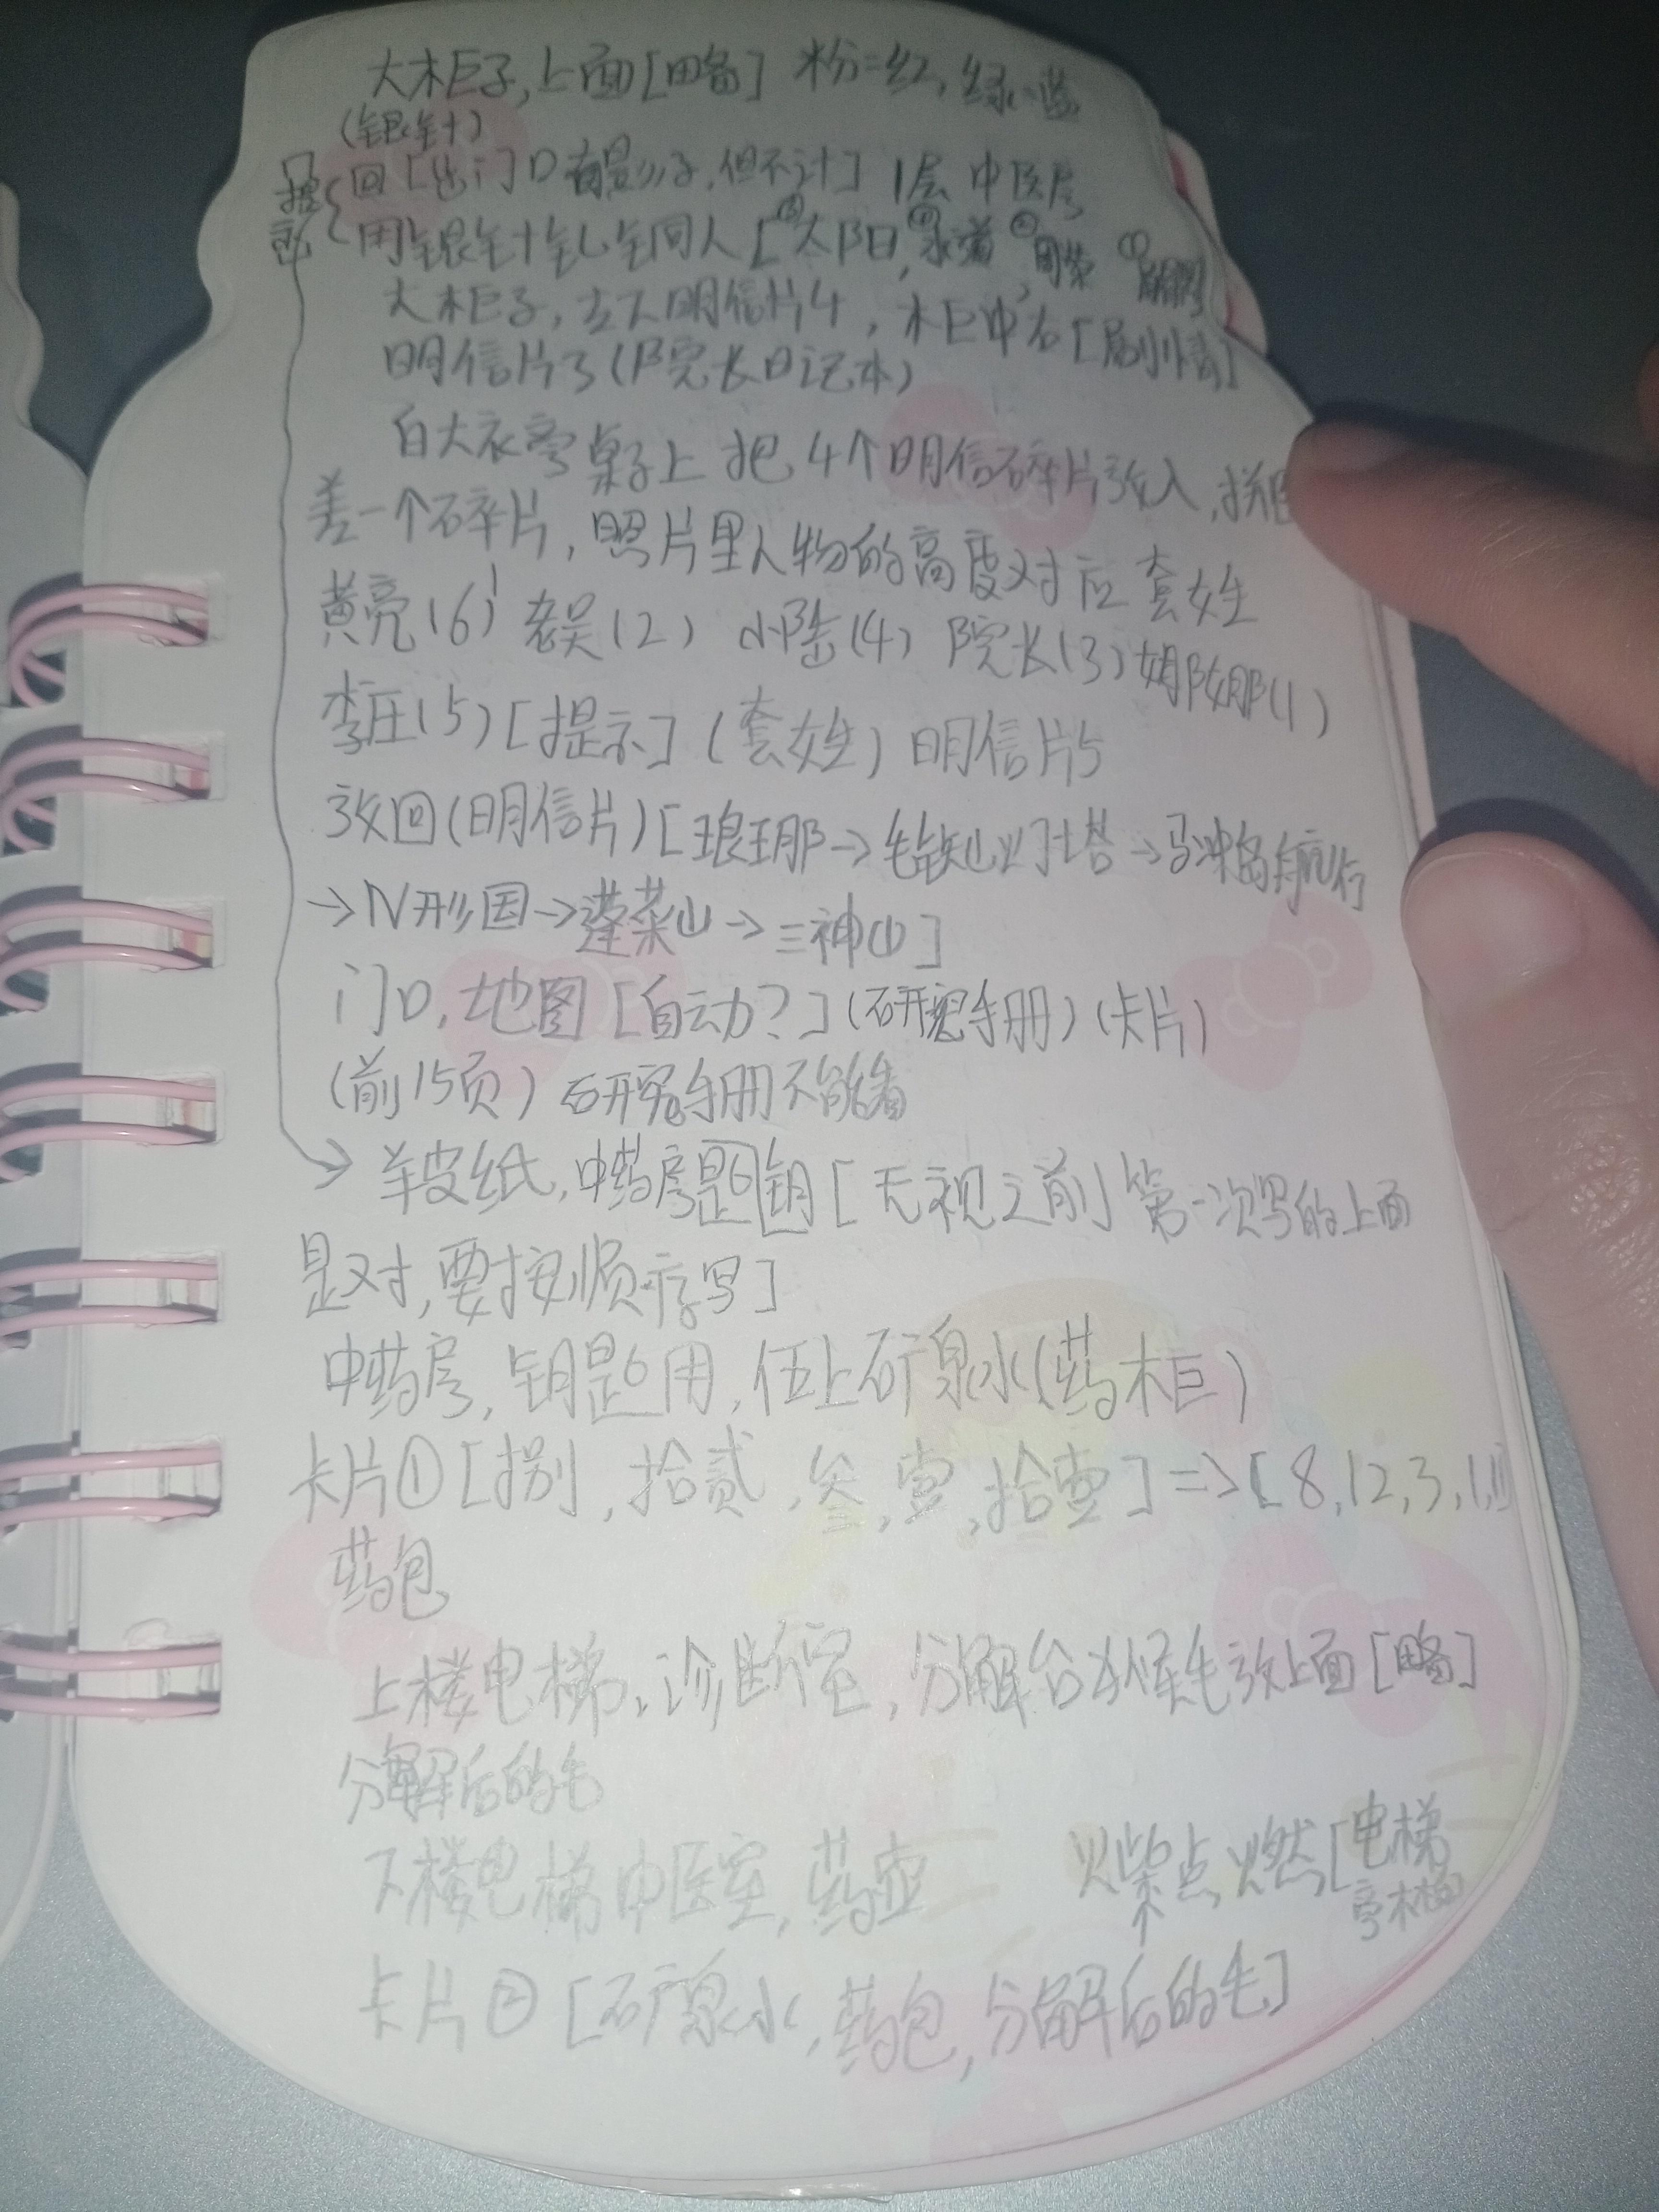 大柜子,上面[略] 粉=红,绿=蓝
(银针)
回[出门口有影子,但不计] 1层中医房
用银针针铜人[③太阳,④承,②,①
大柜子,左下明信片4,柜中右[剧情]
明信片3(院长日记本)
白大衣旁桌子上把4个明信碎片放入,拼
差一个碎片,照片里人物的高度对应套娃
黄亮(6) 老吴(2) 小陆(4) 院长(3) 娜娜(1)
李庄(5)[提示](套娃)明信片5
放回(明信片)[琅琊→毛铁山灯塔→马冲岛航行
→N形国→蓬莱山→三神山]
门口,地图[自动?](研究手册)(卡片)
(前15页)研究手册不能看
→羊皮纸,中药房匙钥[无视之前]第一次写的上面
是对,要按顺序写]
中药房,钥匙用,伍上矿泉水(药柜)
卡片①[捌,拾贰,叁,壹,拾壹]=>[8,12,3,1,11]
药包
上楼电梯,诊断室,分解台将毛放上面[略]
分解后的毛
下楼电梯中医室,药壶 火柴点火燃[电梯
旁木桶]
卡片②[矿泉水,药包,分解后的毛]